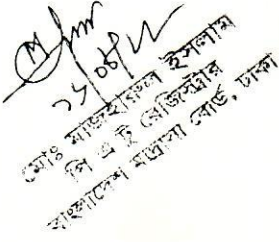 ১৬/০৪/২২
মোঃ মাজহারুল ইসলাম
পি এ টু রেজিস্ট্রার
বাংলাদেশ মাদ্রাসা বোর্ড, ঢাকা